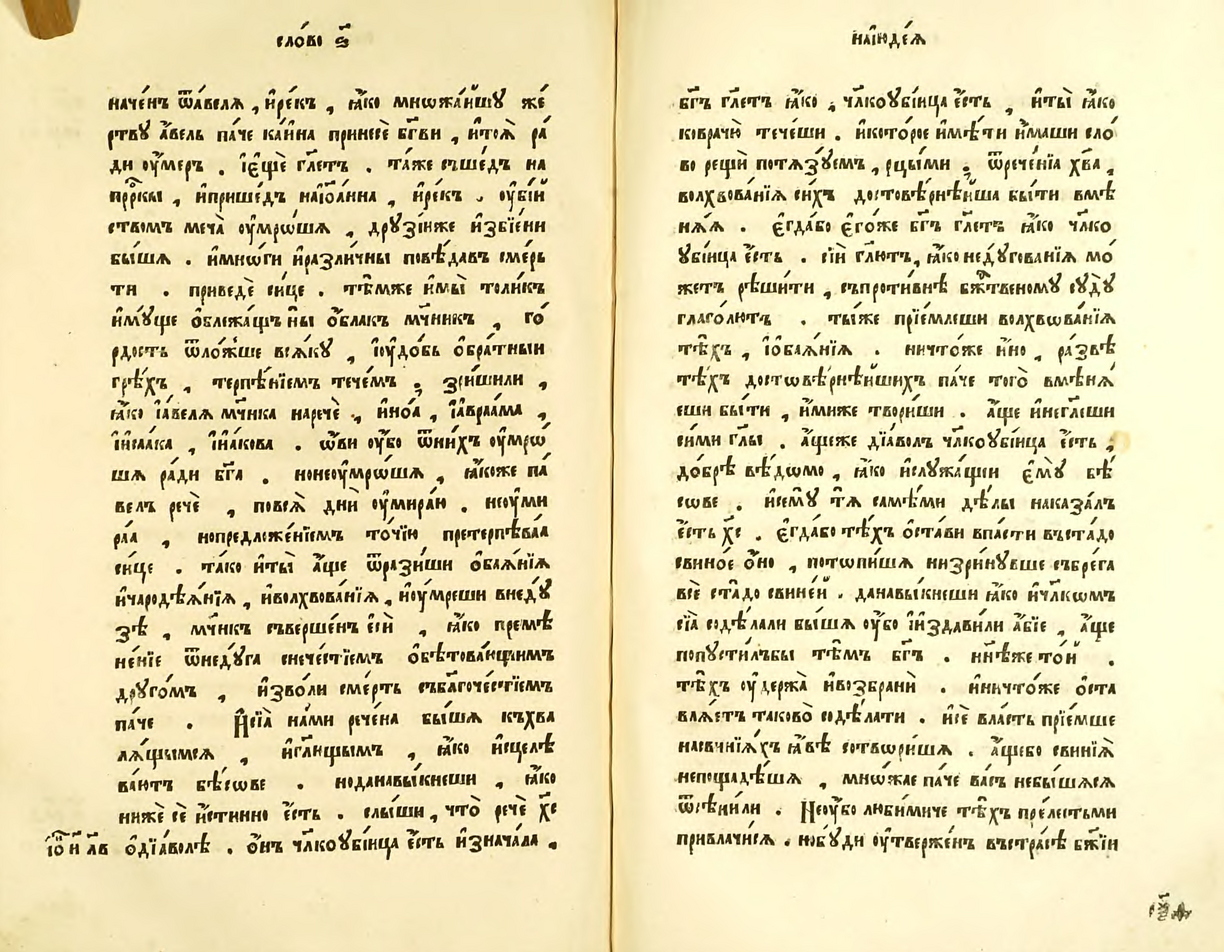 сло́во ѕ҃
наченъ ѿа́велѧ , и҆рекъ , ꙗ҆́ко мнѡжа́йшꙋ же́
ртвꙋ а҆́вель паче ка́ина принесѐ бг҃ви , и҆тоѧ̀ ра́
ди оу҆́меръ . і҆є҆щѐ гл҃етъ . та́же съше́дъ на
прⷪ҇ркы , и҆прише́дъ наі҆оа́нна , и҆рекъ . оу҆бі́й
ствомъ меча̀ оу҆мро́шѧ , дрꙋзі́иже и҆збїе́ни
бы́шѧ . и҆мно́ги и҆разли́чны повѣ́давъ сме́рь
ти . приведѐ сице . тѣ́мже и҆мы̀ толи́къ
и҆мꙋ́ще ѻ҆блежа́щъ ны̀ ѻ҆́блакъ мч҃никъ , го́
рдость ѿло́жше всѧ́кꙋ , і҆оу҆до́бь ѻ҆бра́тныи
грѣ́хъ , терпѣ́нїемъ тече́мъ ; зриши́ли ,
ꙗ҆́ко і҆а́велѧ мч҃ника наречѐ , и҆но́а , і҆авраа́ма ,
і҆и҆саа́ка , і҆и҆а́кова . ѡ҆́ви оу҆́бо ѿни́хъ оу҆мро́
шѧ ра́ди бг҃а . нонеоу҆мро́шѧ , ꙗ҆́коже па́
велъ речѐ , повсѧ̀ дни̑ оу҆мира́ю . неоу҆ми
ра́ѧ , нопредложе́нїемъ то́чїю претерпѣва́ѧ
си́це . та́ко и҆ты̀ а҆́ще ѿрази́ши ѻ҆баѧ́нїѧ
и҆чародѣѧ́нїѧ , и҆волхвова́нїѧ , и҆оу҆́мреши внедꙋ́
зѣ , мч҃никъ съверше́нъ є҆сѝ , ꙗ҆́ко премѣ
не́нїе ѿнедꙋ́га снече́стїемъ ѻ҆бѣтова́ющимъ
дрꙋго́мъ , и҆зво́ли сме́рть съблгоче́стїемъ
паче . И҆сїѧ̀ на́ми рече́на бы́шѧ къхва
лѧ́щымсѧ , и҆гл҃ющымъ , ꙗ҆́ко и҆сцелѣ
ва́ютъ бѣ́сове . ноданавы́кнеши , ꙗ҆́ко
нижѐ сѐ и҆́стинно є҆́сть . слы́ши , что̀ речѐ хс҃
і҆ѡ҃ н҃ лв ѻ҆дїа́волѣ . ѻ҆́нъ чл҃коꙋбі́ица є҆́сть и҆знача́ла .
наі҆юде́ѧ
бг҃ъ гл҃етъ ꙗ҆́ко , чл҃коꙋбі́ица є҆́сть , и҆ты̀ ꙗ҆́ко
коврачю̀ тече́ши . и҆кото́рое и҆мѣ́ти и҆́маши сло́
во рещѝ потѧзꙋ́емъ , рцы́ми ; ѿрече́нїа хв҃а ,
волхвова́нїѧ си́хъ достовѣ́рнѣйша бы́ти вмѣ
нѧ́ѧ . є҆гда́бо є҆го́же бг҃ъ гл҃етъ ꙗ҆́ко чл҃ко
ꙋбі́ица є҆́сть . сїѝ гл҃ютъ , ꙗ҆́ко недꙋгова́нїѧ мо́
жетъ рѣши́ти , съпроти́внѣ бж҃твеномꙋ сꙋдꙋ̀
глаго́лютъ . ты́же прїе́млеши волхвова́нїѧ
тѣ́хъ , і҆ѻ҆баѧ́нїѧ . ничто́же и҆́но , ра́звѣ
тѣ́хъ достовѣ́рнѣйшихъ па́че того̀ вмѣнѧ́
еши бы́ти , и҆ми́же твори́ши . а҆́ще и҆негл҃еши
си́ми гл҃ы . а҆́щеже дїа́волъ чл҃коꙋбі́ица є҆́сть ,
до́брѣ вѣ́домо , ꙗ҆́ко и҆слꙋжа́щеи є҆мꙋ̀ бѣ́
сове . и҆семꙋ̀ тѧ̀ самѣ́ми дѣ́лы наказа́лъ
є҆́сть хе҃ . є҆гда́бо тѣ́хъ ѻ҆ста́ви впа́сти въста́до
свино́е ѻ҆́но , потопи́шѧ низри́нꙋвше събре́га
всѐ ста́до свине́й . данавы́кнеши ꙗ҆́ко и҆чл҃комъ
сїѧ̀ содѣ́лали бы́шѧ оу҆́бо і҆издави́ли а҆́бїе , а҆́ще
попꙋсти́лъбы тѣ́мъ бг҃ъ . нн҃ѣже то́й .
тѣ́хъ оу҆держа̀ и҆возбранѝ . и҆ничто́же ѻ҆ста
влѧ́етъ таково̀ содѣ́лати . и҆сѐ вла́сть прїе́мше
насвинїѧ́хъ ꙗ҆́вѣ сотвори́шѧ . а҆́щебо свинїѧ̀
непощадѣ́шѧ , мно́жае па́че ва́съ небы́шѧсѧ
ѿсѣни́ли . Неоу҆́бо люби́миче тѣ́хъ пре́лестьми
привлачи́сѧ . нобꙋ́ди оу҆тверже́нъ въстра́сѣ бж҃їи